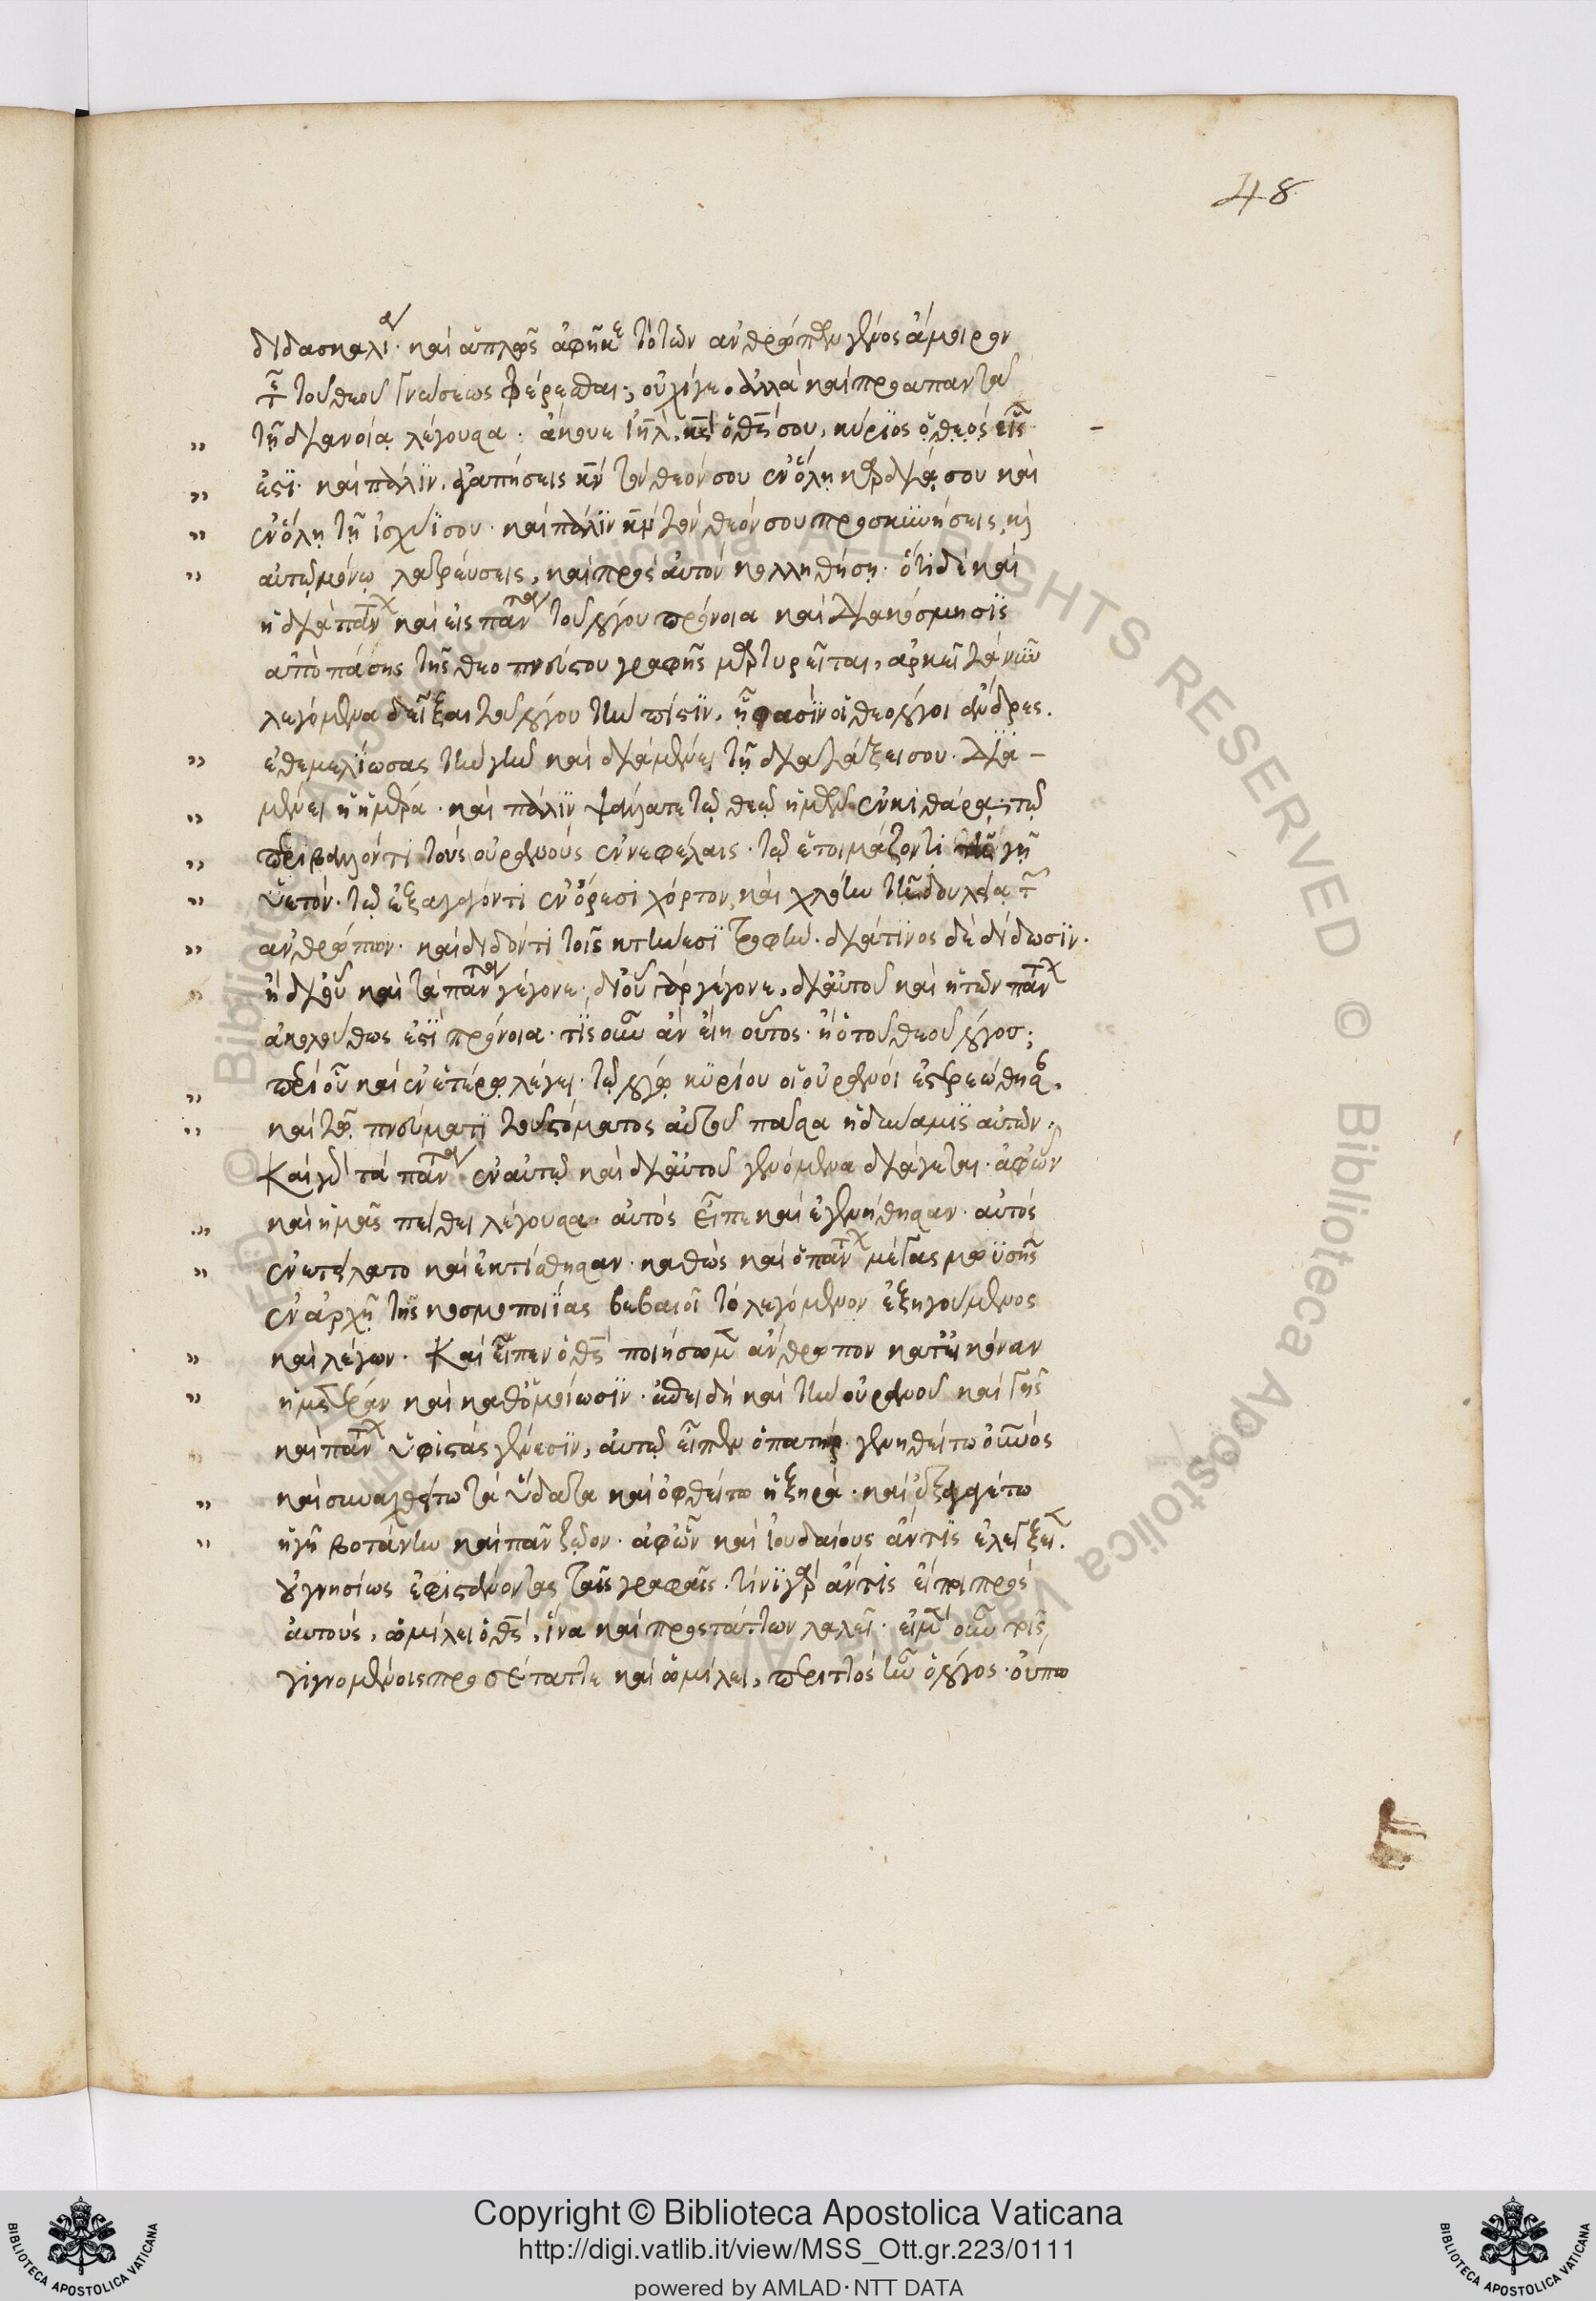 48
διδασκαλίαν· καὶ ἁπλῶς ἀφῆκε τὸ τῶν ἀνθρώπων γένος ἄμοιρον
τῆς τοῦ θεοῦ γνώσεως φέρεσθαι; οὐχίγε· ἀλλὰ καὶ προαπαντᾷ
τῇ διανοίᾳ λέγουσα· ἄκουε ἰηλ, κς ὁ θς σου, κύριος ὁ θεὸς εἷς
ἐστι· καὶ πάλιν, ἀγαπήσεις κν τὸν θεόν σου ἐν ὅλῃ καρδίᾳ σου καὶ
ἐν ὅλῃ τῇ ἰσχύϊ σου· καὶ πάλιν κν τὸν θεόν σου προσκυνήσεις, καὶ
αὐτῷ μόνῳ λατρεύσεις, καὶ πρὸς αὐτὸν κολληθήσῃ· ὅτι δὲ καὶ
ἡ διὰ πάντων καὶ εἰς πάντα τοῦ λόγου πρόνοια καὶ διακόσμησις
ἀπὸ πάσης τῆς θεοπνεύστου γραφῆς μαρτυρεῖται, ἀρκεῖ τὰ νῦν
λεγόμενα δεῖξαι τοῦ λόγου τὴν πίστιν, ᾗ φασὶν οἱ θεολόγοι ἄνδρες.
ἐθεμελίωσας τὴν γῆν καὶ διαμένει τῇ διατάξει σου· δια-
μένει ἡ ἡμέρα· καὶ πάλιν ψάλατε τῷ θεῷ ἡμῶν ἐν κιθάρᾳ, τῷ
περιβάλλοντι τοὺς οὐρανοὺς ἐν νεφέλαις· τῷ ἑτοιμάζοντι τῇ γῇ
ὑετόν· τῷ ἐξαγαγόντι ἐν ὄρεσι χόρτον, καὶ χλόην τῇ δουλείᾳ τῶν
ἀνθρώπων· καὶ διδόντι τοῖς κτήνεσι τροφήν· διὰ τίνος δὲ δίδωσιν·
ἢ δι' οὗ καὶ τὰ πάντα γέγονε· δι' οὗ γὰρ γέγονε, δι' αὐτοῦ καὶ ἡ τῶν πάντων
ἀκολούθως ἐστὶ πρόνοια· τίς οὖν ἂν εἴη οὗτος· ἢ ὁ τοῦ θεοῦ λόγος;
περὶ οὗ καὶ ἐν ἑτέρῳ λέγει· τῷ λόγῳ κυρίου οἱ οὐρανοὶ ἐστρεώθησαν,
καὶ τῷ πνεύματι τοῦ στόματος αὐτοῦ πᾶσα ἡ δύναμις αὐτῶν·
Καὶ γὰρ τὰ πάντα ἐν αὐτῷ καὶ δι' αὐτοῦ γενόμενα διάγεται· ἀφ' ὧν
καὶ ἡμᾶς πείθει λέγουσα· αὐτὸς εἶπε καὶ ἐγενήθησαν· αὐτὸς
ἐνετείλατο καὶ ἐκτίσθησαν· καθὼς καὶ ὁ πάντων μέγας μωϋσῆς
ἐν ἀρχῇ τῆς κοσμοποιΐας βεβαιοῖ τὸ λεγόμενον ἐξηγούμενος
καὶ λέγων· Καὶ εἶπεν ὁ θς ποιήσωμεν ἄνθρωπον κατ' εἰκόναν
ἡμετέραν καὶ καθ' ὁμοίωσιν· ἐπειδὴ καὶ τὴν οὐρανοῦ καὶ γῆς
καὶ πάντων ὑφιστὰς γένεσιν, αὐτῷ εἶπεν ὁ πατήρ· γενηθείτω οὐνός
καὶ συναχθείτω τὰ ὕδατα καὶ ὀφθείτω ἡ ξηρά· καὶ ἐξαγαγέτω
ἡ γῆ βοτάνην καὶ πᾶν ζῷον· ἀφ' ὧν καὶ ἰουδαίους ἄν τις ἐλέγξειεν
οὐ γνησίως ἐφιστάνοντας ταῖς γραφαῖς· τίνι γὰρ ἄν τις εἴποι πρὸς
αὐτούς, ὡμίλει ὁ θς, ἵνα καὶ προστάττων λαλεῖ· εἰ μὲν οὖν τοῖς
γιγνομένοις προσέταττε καὶ ὡμίλει, περιττὸς ἦν ὁ λόγος· οὔπω
Copyright © Biblioteca Apostolica Vaticana
http://digi.vatlib.it/view/MSS_Ott.gr.223/0111
powered by AMLAD·NTT DATA